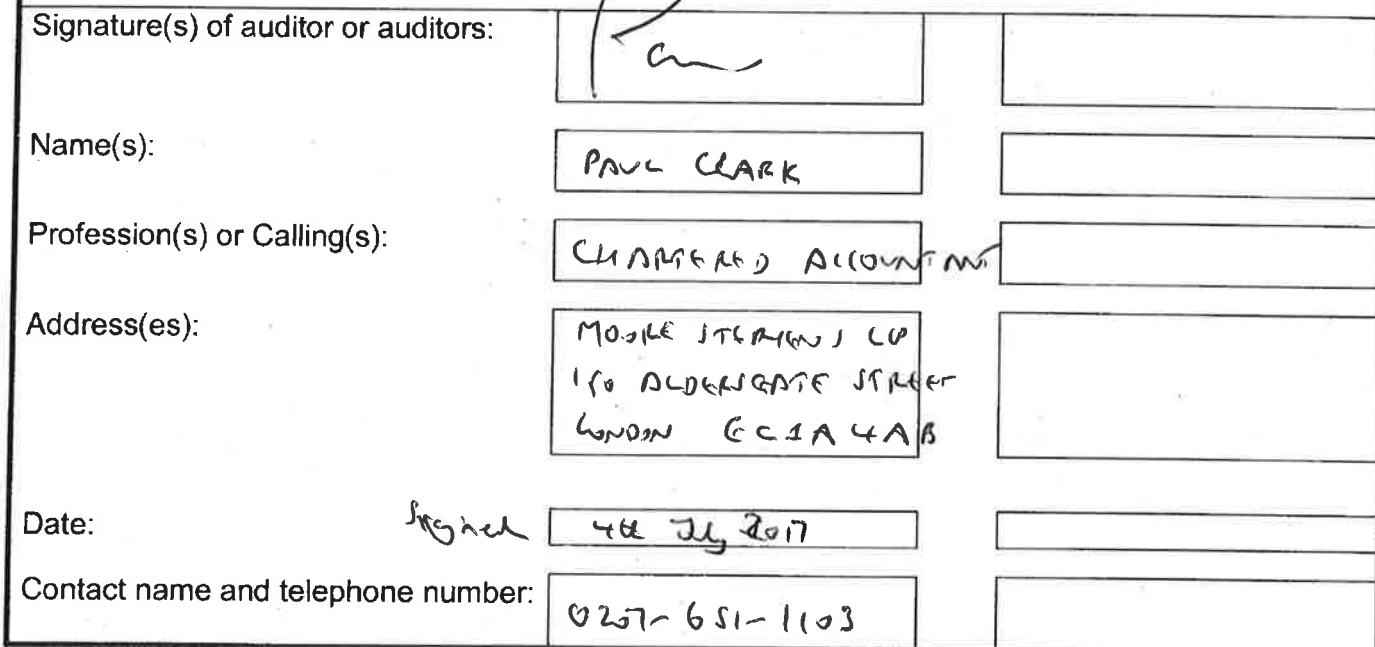 Signature(s) of auditor or auditors:
Name(s): PAUL CLARK
Profession(s) or Calling(s): CHARTERED ACCOUNTANT
Address(es): MOORE STEPHENS LLP
150 ALDERSGATE STREET
LONDON EC1A 4AB
Date: Signed 4th July 2017
Contact name and telephone number: 0207-651-1103